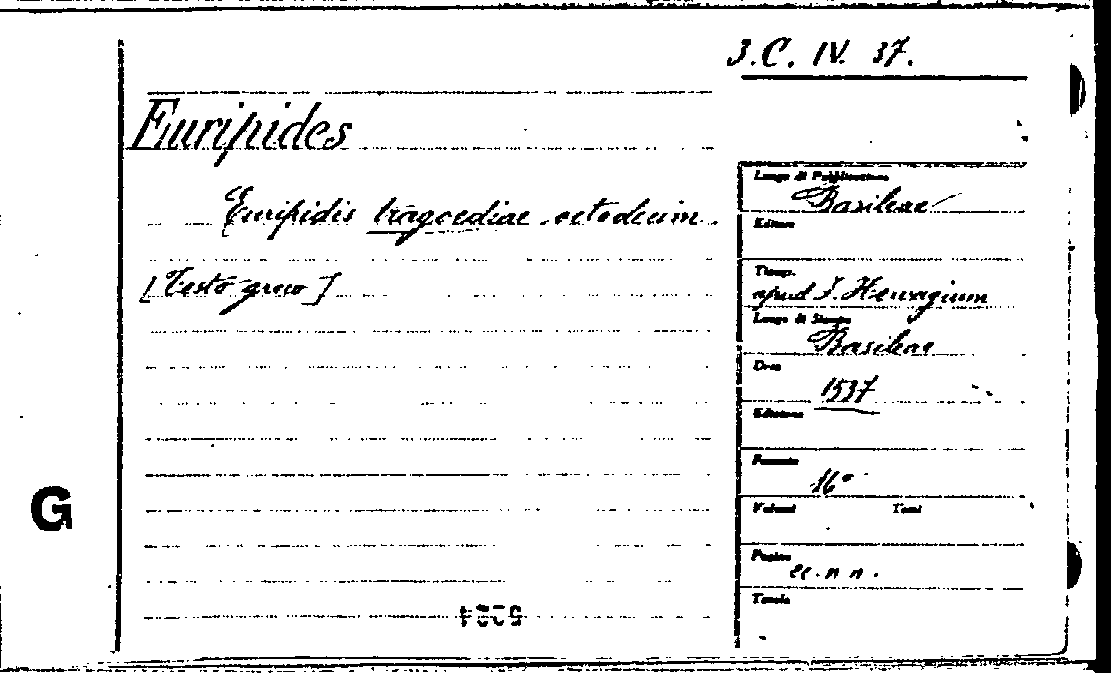 3.C. IV. 37.
Euripides
Euripidis tragoediae octodecim.
[Testo greco]
Luogo di Pubblicazione
Basileae
Editore
Tipogr.
apud J. Hervagium
Luogo di Stampa
Basileae
Data
1537
Edizione
Formato
16°
Volumi Tomi
Pagine
cc. n n.
Tavole
G